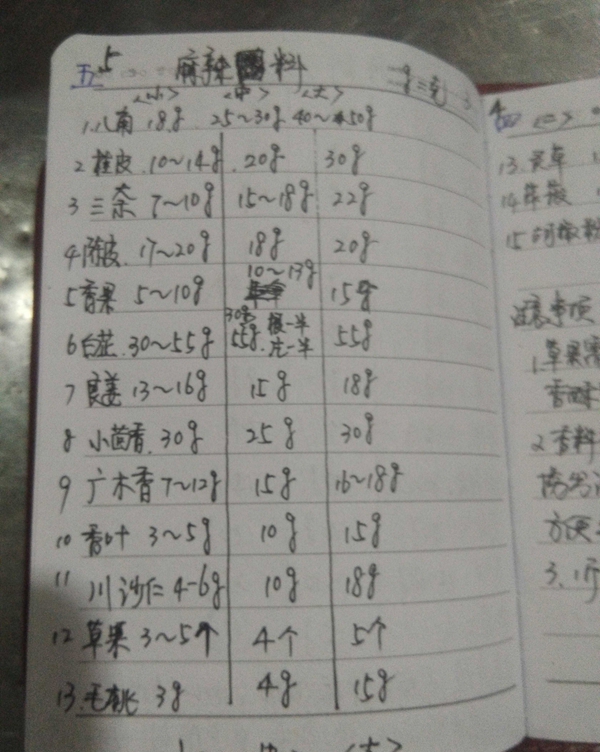 5 麻辣 料
五
<小> <中> <大>
1.八角 18g 25~30g 40~50g
2 桂皮. 10~14g 20g 30g
3 三奈 7~10g 15~18g 22g
4 陈皮. 17~20g 18g 20g
10~13g
5 香果 5~10g 15g
30g 根一半
6 白芷. 30~55g 55g. 一半 55g
7 良姜 13~16g 15g 18g
8 小茴香. 30g 25g 30g
9 广木香 7~12g 15g 16~18g
10 香叶 3~5g 10g 15g
11 川沙仁 4-6g 10g 18g
12 草果 3~5个 4个 5个
13. 毛桃 3g 4g 15g
<大>
4
四
13.灵草
14
15 胡椒粉
注意事项
1.草果
香
2 香料
方便
3. 1斤